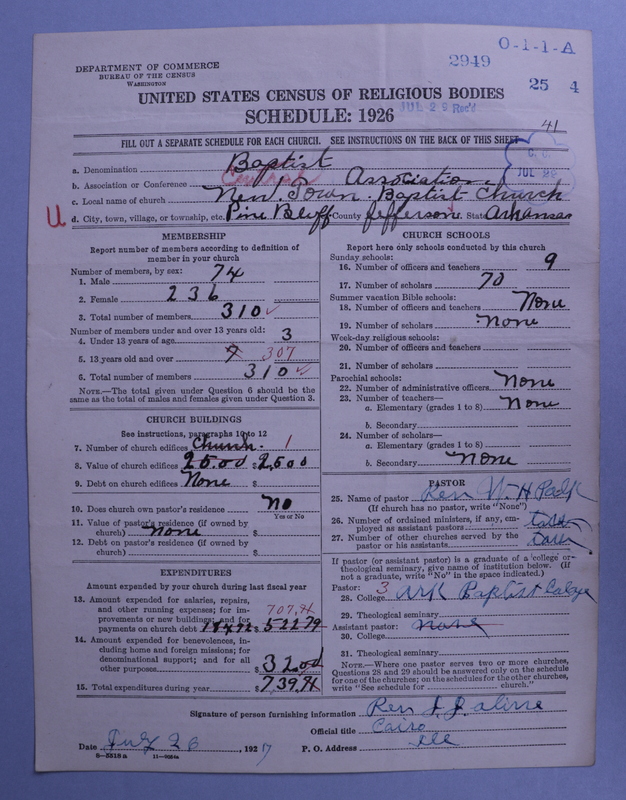 O-1-1-A
2949
25 4
DEPARTMENT OF COMMERCE
BUREAU OF THE CENSUS
WASHINGTON
UNITED STATES CENSUS OF RELIGIOUS BODIES
JUL 29 Rec'd
SCHEDULE: 1926
41
FILL OUT A SEPARATE SCHEDULE FOR EACH CHURCH. SEE INSTRUCTIONS ON THE BACK OF THIS SHEET
JUL 22
a. Denomination Baptist
b. Association or Conference Association
c. Local name of church New Town Baptist Church
U d. City, town, village, or township, etc. Pine Bluff County Jefferson State Arkansas
MEMBERSHIP
Report number of members according to definition of
member in your church
Number of members, by sex:
1. Male 74
2. Female 236
3. Total number of members 310 ✓
Number of members under and over 13 years old:
4. Under 13 years of age 3
5. 13 years old and over 307
6. Total number of members 310 ✓
NOTE.—The total given under Question 6 should be the
same as the total of males and females given under Question 3.
CHURCH BUILDINGS
See instructions, paragraphs 10 to 12
7. Number of church edifices Church. 1
8. Value of church edifices 2500 $ 2,500
9. Debt on church edifices None $
10. Does church own pastor's residence? No
Yes or No
11. Value of pastor's residence (if owned by
church) None $
12. Debt on pastor's residence (if owned by
church) $
EXPENDITURES
Amount expended by your church during last fiscal year
13. Amount expended for salaries, repairs,
and other running expenses; for im-
provements or new buildings; and for
payments on church debt 184.92 $ 522.79
707.71
14. Amount expended for benevolences, in-
cluding home and foreign missions; for
denominational support; and for all
other purposes $ 32.00
15. Total expenditures during year $ 739.71
CHURCH SCHOOLS
Report here only schools conducted by this church
Sunday schools:
16. Number of officers and teachers 9
17. Number of scholars 70
Summer vacation Bible schools:
18. Number of officers and teachers None
19. Number of scholars None
Week-day religious schools:
20. Number of officers and teachers
21. Number of scholars
Parochial schools:
22. Number of administrative officers None
23. Number of teachers—
a. Elementary (grades 1 to 8) None
b. Secondary
24. Number of scholars—
a. Elementary (grades 1 to 8)
b. Secondary None
PASTOR
25. Name of pastor Rev W. H.
(If church has no pastor, write "None")
26. Number of ordained ministers, if any, em-
ployed as assistant pastors
27. Number of other churches served by the
pastor or his assistants
If pastor (or assistant pastor) is a graduate of a college or
theological seminary, give name of institution below. (If
not a graduate, write "No" in the space indicated.)
Pastor: 3
28. College Ark Baptist
29. Theological seminary
Assistant pastor: None
30. College
31. Theological seminary
NOTE.—Where one pastor serves two or more churches,
Questions 28 and 29 should be answered only on the schedule
for one of the churches; on the schedules for the other churches,
write "See schedule for church."
Signature of person furnishing information Rev J. J.
Official title Cairo
Date July 26, 1927 P. O. Address Ill
8-5518 a 11-9054a